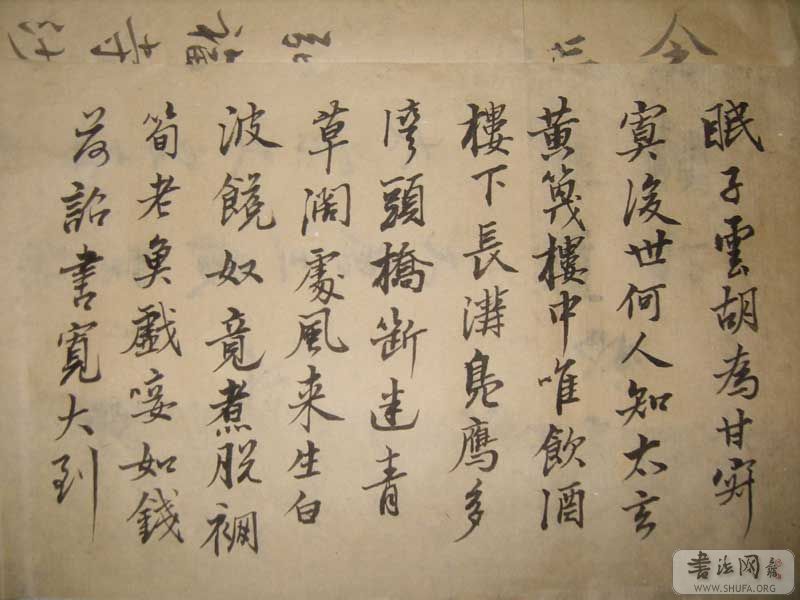 眠子雲胡為甘寂
寞後世何人知太玄
黃篾樓中唯飲酒
樓下長溝鳧鷹多
湾頭橋斷迷青
草闊處風来生白
波饒奴竟煮脫襴
筍老魚戲唼如錢
荷詔書寬大到
書法网
WWW.SHUFA.ORG